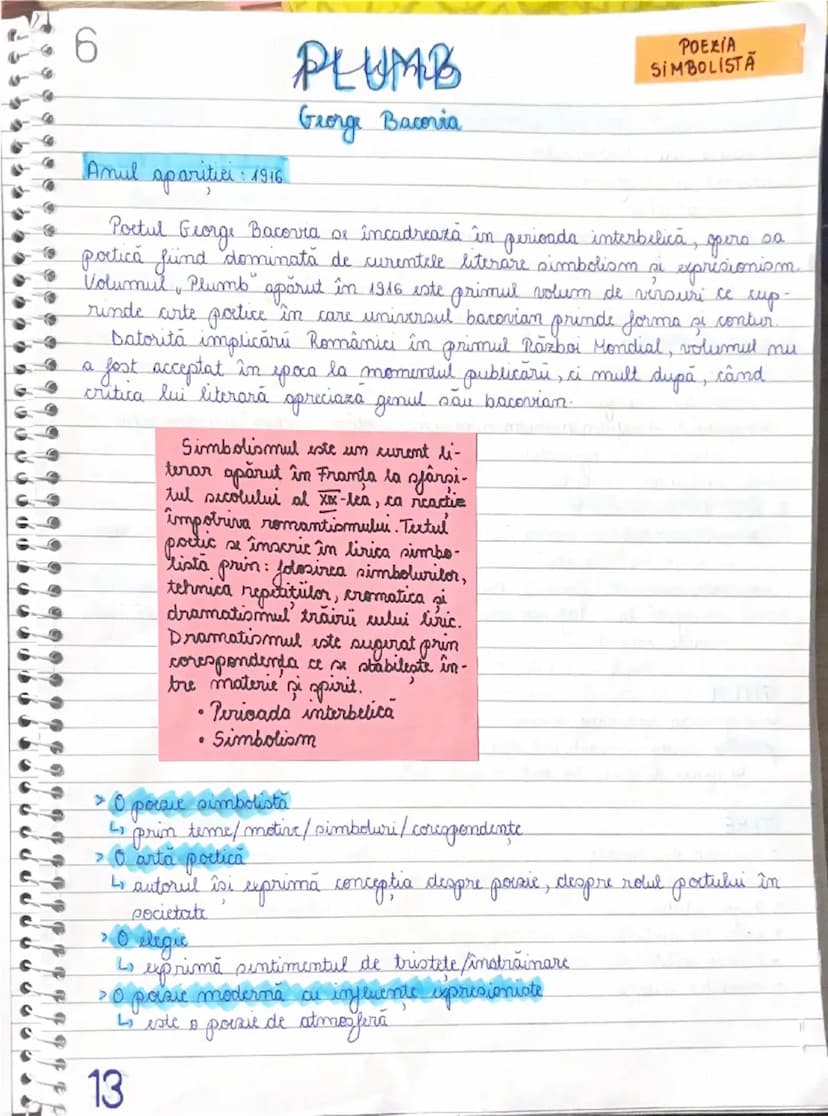 6
PLUMB
POEZIA
SIMBOLISTĂ
George Bacovia
Anul apariției: 1916
Poetul George Bacovia se încadrează în perioada interbelică, opera sa
poetică fiind dominată de curentele literare simbolism și expresionism.
Volumul „Plumb" apărut în 1916 este primul volum de versuri ce cup-
rinde arte poetice în care universul bacovian prinde forma și contur.
Datorită implicării României în primul Război Mondial, volumul nu
a fost acceptat în epoca la momentul publicării, ci mult după, când
critica lui literară apreciază genul său bacovian.
Simbolismul este un curent li-
terar apărut în Franța la sfârși-
tul secolului al XIX-lea, ca reacție
împotriva romantismului. Textul
poetic se înscrie în lirica simbo-
listă prin: folosirea simbolurilor,
tehnica repetițiilor, cromatica și
dramatismul trăirii eului liric.
Dramatismul este sugerat prin
corespondența ce se stabilește în-
tre materie și spirit.
• Perioada interbelică
• Simbolism
> O poezie simbolistă
↳ prin teme/motive/simboluri/corespondențe
> O artă poetică
↳ autorul își exprimă concepția despre poezie, despre rolul poetului în
societate
> O elegie
↳ exprimă sentimentul de tristețe/înstrăinare
> O poezie modernă cu influențe expresioniste
↳ este o poezie de atmosferă
13